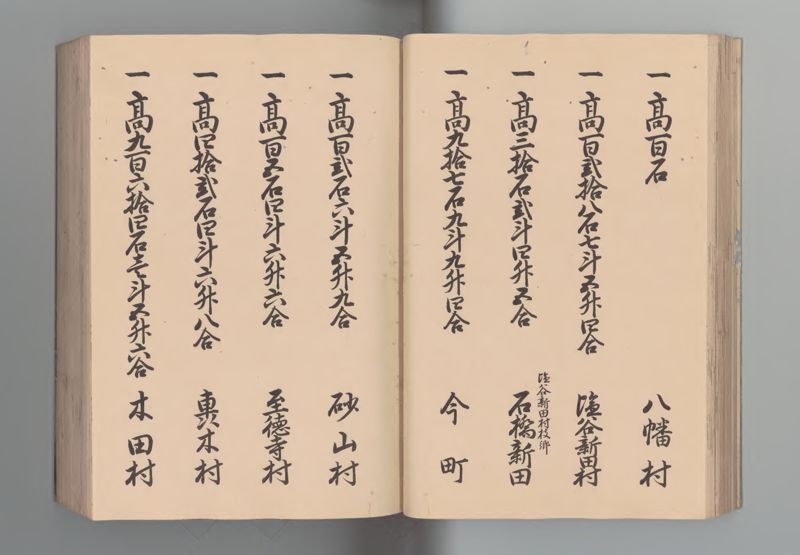 一 髙百石 八幡村
一 髙百弐拾八石七斗五升四合 塩谷新田村
塩谷新田村枝郷
一 髙三拾石弐斗四升五合 石橋新田
一 髙九拾七石九斗九升四合 今町
一 髙百弐石六斗五升九合 砂山村
一 髙百五石四斗六升六合 至徳寺村
一 髙四拾弐石四斗六升八合 轟木村
一 髙九百六拾四石壱斗五升六合 木田村